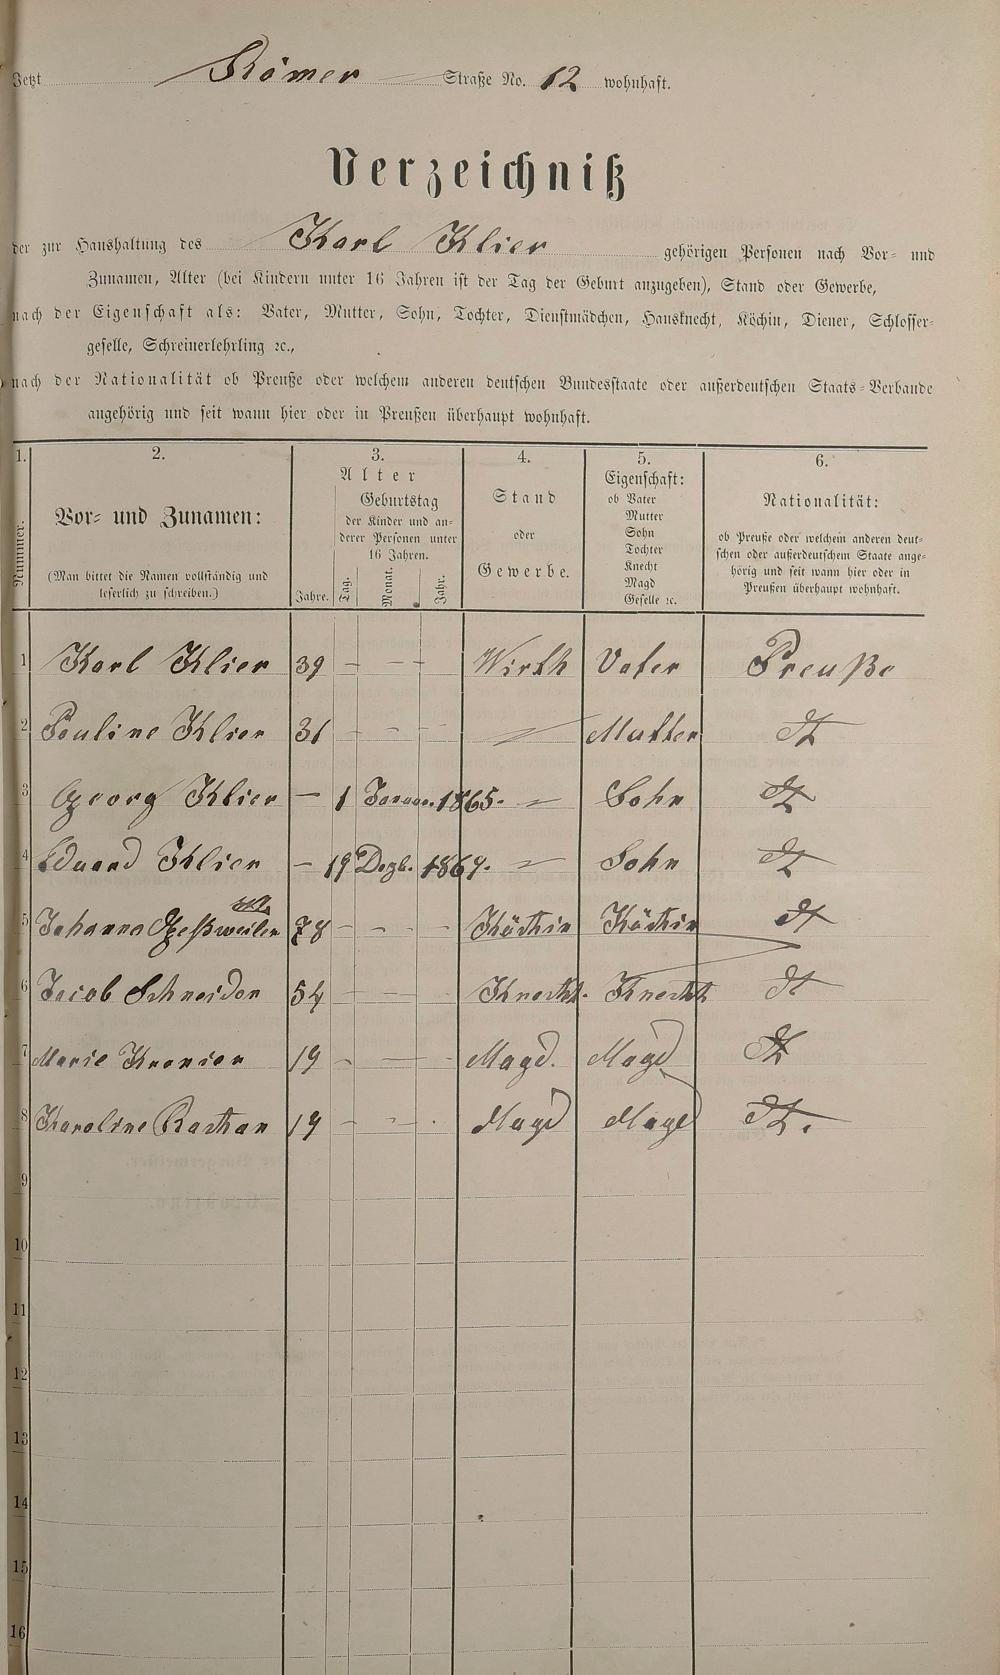 Jetzt Römer Straße No. 12 wohnhaft.
Verzeichniß
der zur Haushaltung des Karl Klier gehörigen Personen nach Vor- und
Zunamen, Alter (bei Kindern unter 16 Jahren ist der Tag der Geburt anzugeben), Stand oder Gewerbe,
nach der Eigenschaft als: Vater, Mutter, Sohn, Tochter, Dienstmädchen, Hausknecht, Köchin, Diener, Schlosser-
geselle, Schreinerlehrling ꝛc.,
nach der Nationalität ob Preuße oder welchem anderen deutschen Bundesstaate oder außerdeutschen Staats-Verbande
angehörig und seit wann hier oder in Preußen überhaupt wohnhaft.
1. 2. 3. 4. 5. 6.
Nummer.
Vor- und Zunamen:
(Man bittet die Namen vollständig und
leserlich zu schreiben.)
Alter
Jahre.
Geburtstag
der Kinder und an-
derer Personen unter
16 Jahren.
Tag. Monat. Jahr.
Stand
oder
Gewerbe.
Eigenschaft:
ob Vater
Mutter
Sohn
Tochter
Knecht
Magd
Geselle ꝛc.
Nationalität:
ob Preuße oder welchem anderen deut-
schen oder außerdeutschem Staate ange-
hörig und seit wann hier oder in
Preußen überhaupt wohnhaft.
1 Karl Klier 39 - - - Wirth Vater Preuße
2 Pauline Klier 31 - - - - Mutter dt
3 Georg Klier - 1 Januar. 1865. - Sohn dt
4 Eduard Klier - 19 Dezb. 1869. - Sohn dt
5 Johanna 78 - - - Köchin Köchin dt
6 Jacob Schneider 54 - - - Knecht. Knecht dt
7 Marie 19 - - - Magd. Magd dt
8 Karoline 19 - - . Magd Magd dt.
9
10
11
12
13
14
15
16